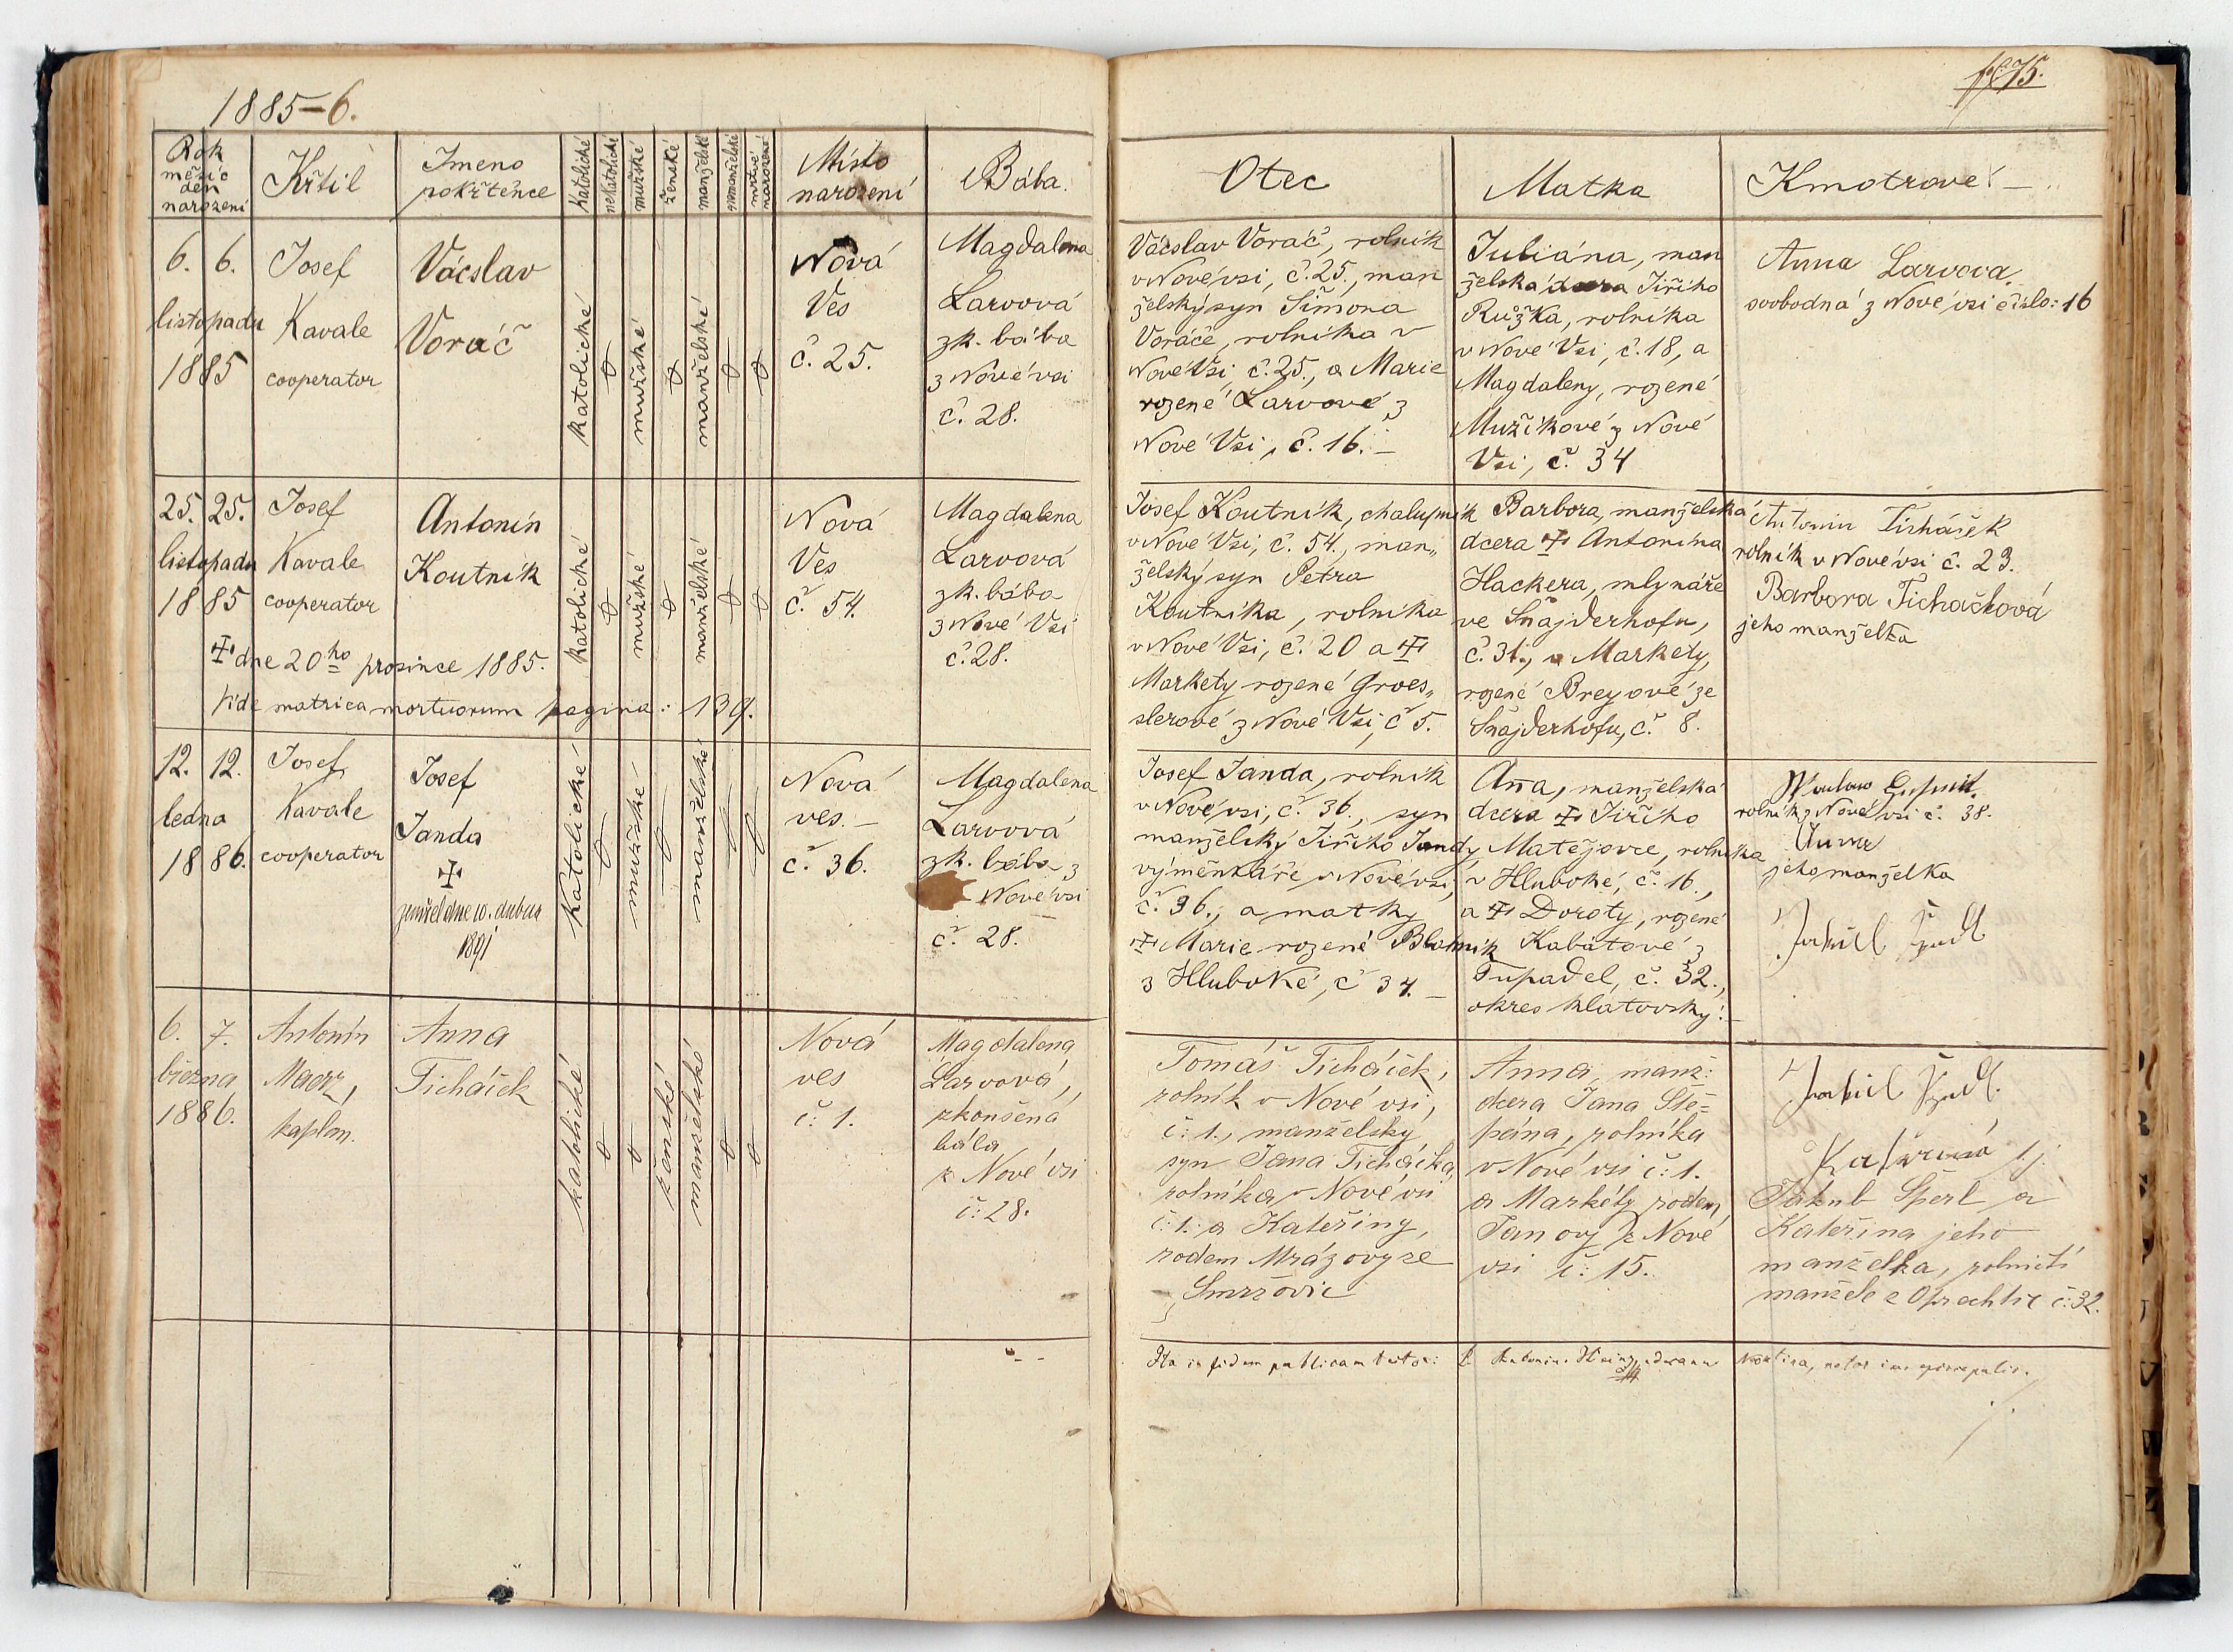 1885-6.
75.
Rok
měsíc
den
narození
Křtil
Jmeno
pokřtěnce
katolické
nekatolické
mužské
ženské
manželské
nemanželské
mrtvě
narozené
Místo
narození
Bába.
Otec
Matka
Kmotrové
6. 6.
listopadu
1885
Josef
Kavale
cooperator
Vácslav
Voráč
katolické
mužské
manželské
Nová
Ves
č. 25.
Magdalena
Larvová
zk. bába
z Nové vsi
č. 28.
Vácslav Voráč, rolník
v Nové vsi, č. 25., man
želský syn Šimona
Voráče, rolníka v
Nové Vsi č. 25., a Marie
rozené Larvové z
Nové Vsi, č. 16. –
Juliána, man
želská dcera Jiřího
Růžka, rolníka
v Nové Vsi, č. 18, a
Magdaleny, rozené
Mužíkové z Nové
Vsi, č. 34
Anna Larvova,
svobodná z Nové vsi číslo: 16
25. 25.
listopadu
1885
Josef
Kavale
cooperator
Antonín
Koutník
katolické
mužské
manželské
Nová
Ves
č. 54.
Magdalena
Larvová
zk. bába
z Nové Vsi
č. 28.
✝ dne 20ho prosince 1885.
Vide matrica mortuorum pagina: 139.
Josef Koutník, chalupník
v Nové Vsi, č. 54., man„
želský syn Petra
Koutníka, rolníka
v Nové Vsi, č. 20 a ✝
Markety rozené Groes„
slerové z Nové Vsi, č. 5.
Barbora, manželská
dcera ✝ Antonína
Hackera, mlynáře
ve Šnajderhofu,
č. 31., a Markety,
rozené Breyové ze
Šnajderhofu, č. 8.
Antonin Ticháček
rolník v Nové vsi č. 23.
Barbora Ticháčková
jeho manželka
12. 12.
ledna
1886.
Josef
Kavale
cooperator
Josef
Janda
✝
zemřel dne 10. dubna
1891
katolické
mužské
manželské
Nová
ves. –
č. 36.
Magdalena
Larvová
zk. bába z
Nové vsi
č. 28.
Josef Janda, rolník
v Nové vsi, č. 36., syn
manželský Jiřího Jandy,
výměnkáře v Nové vsi,
č. 36., a matky
✝ Marie rozené Blatník
z Hluboké, č 34. –
Ana, manželská
dcera ✝ Jiřího
Matějovce, rolníka
v Hluboké, č. 16.,
a ✝ Doroty, rozené
Kabátové z
Tupadel, č. 32.,
okres klatovský. –
rolník z Nové vsi č. 38.
Anna
jeho manželka
6. 7.
března
1886.
Antonín
Maerz,
kaplan.
Anna
Ticháček
katolické
ženské
manželské
Nová
ves
č: 1.
Magdalena
Larvová,
zkoušená
bába
z Nové vsi
č: 28.
Tomáš Ticháček,
rolník v Nové vsi,
č: 1., manželský
syn Jana Ticháčka,
rolníka v Nové vsi
č: 1. a Kateřiny,
rodem Mrázovy ze
Smržovic
Anna, manž:
dcera Jana Ště=
pána, rolníka
v Nové vsi č: 1.
a Markéty rodem
Janovy z Nové
vsi č: 15.
Kateřina tj.
Jakub Šperl a
Kateřina jeho
manželka, rolničtí
manželé z Oprechtic č: 32.
Ita in fidem publicam testor: